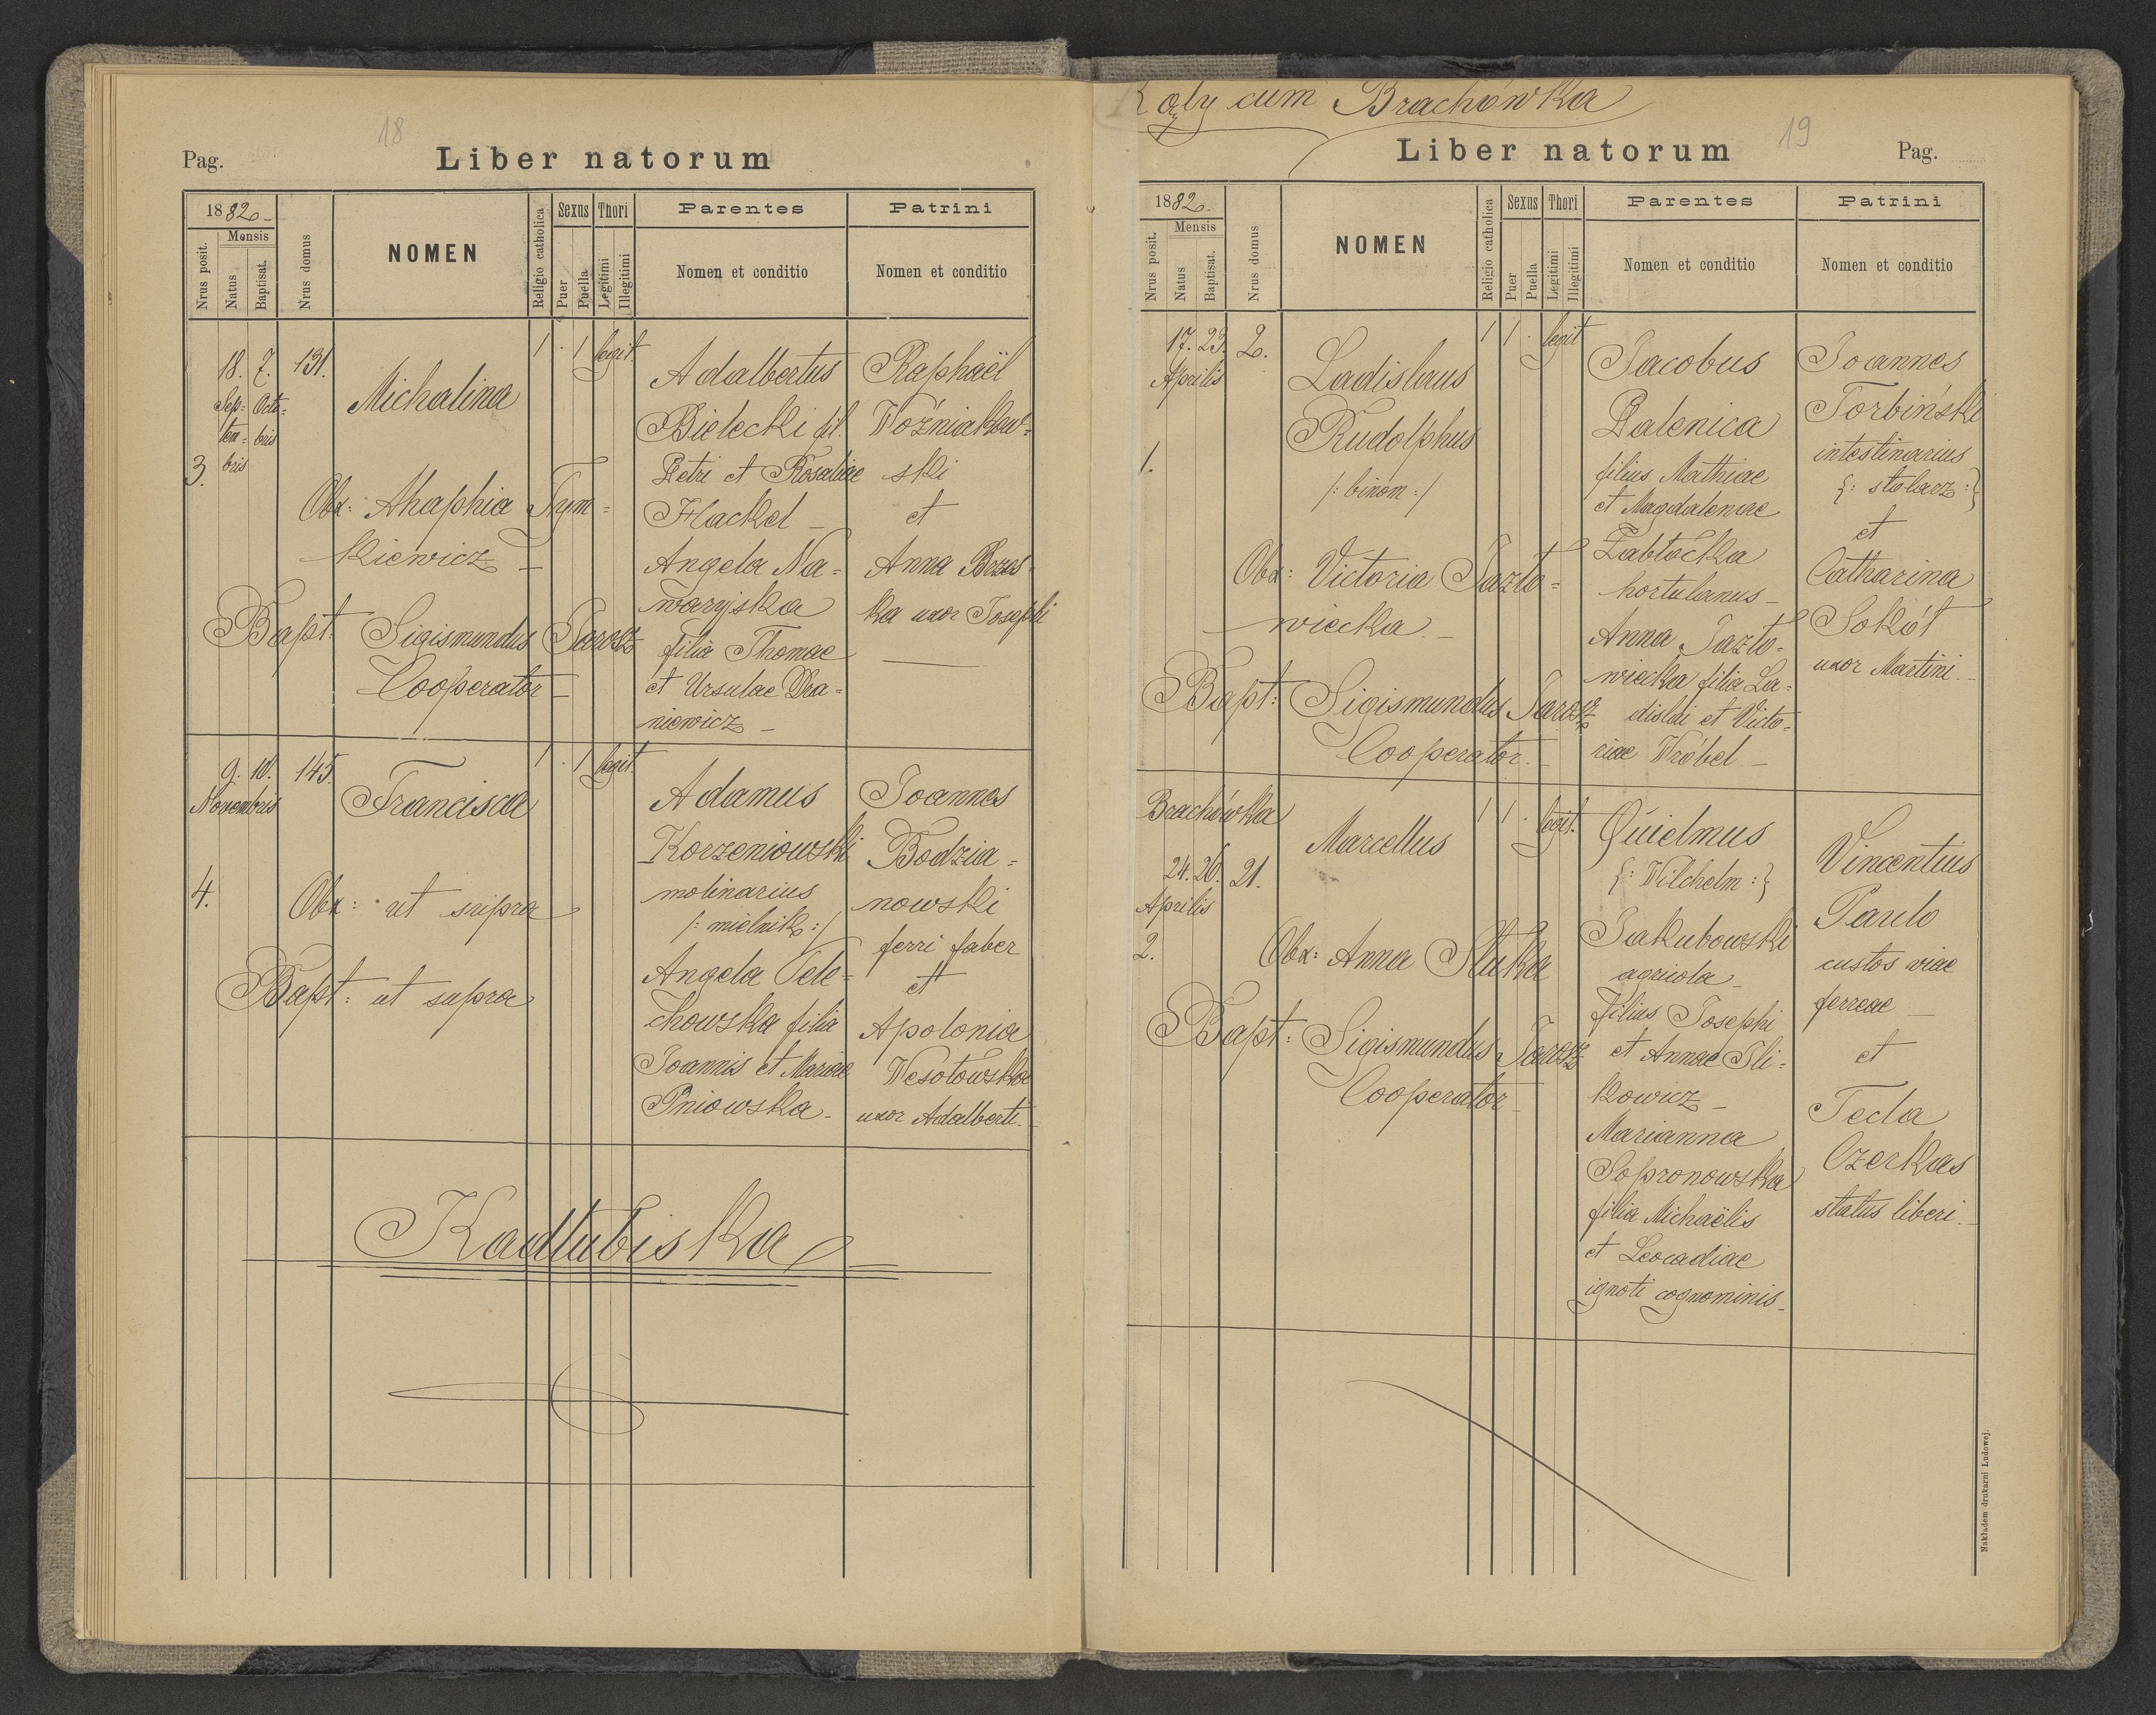 18
Pag.
Liber natorum
1882.
Mensis
Nrus posit.
Natus
Baptisat.
Nrus domus
NOMEN
Religio catholica
Sexus
Puer
Puella
Thori
Legitimi
Illegitimi
Parentes
Nomen et conditio
Patrini
Nomen et conditio
3.
18. 7.
Sep= Octo=
tem= bris
bris
131.
Michalina
Obx: Ahaphia Tym=
kiewicz
Bapt: Sigismundus Jarosz
Cooperator
1 . 1 legit.
Adalbertus
Bielecki fil.
Petri et Rosaliae
Hackel
Angela Na=
waryjska
filia Thomae
et Ursulae Dra=
niewicz
Raphaël
Woźniakow=
ski
et
Anna Brzos=
ka uxor Josephi
4.
9. 10.
Novembris
145.
Francisca
Obx: ut supra
Bapt: ut supra
1 . 1 legit.
Adamus
Korzeniowski
molinarius
/: mielnik :/
Angela Tele=
chowska filia
Joannis et Mariae
Pniowska
Joannes
Bodzia=
nowski
ferri faber
et
Apolonia
Wesołowska
uxor Adalberti.
Kadłubiska
Kąty cum Brachówka
19
Liber natorum
Pag.
1882.
Mensis
Nrus posit.
Natus
Baptisat.
Nrus domus
NOMEN
Religio catholica
Sexus
Puer
Puella
Thori
Legitimi
Illegitimi
Parentes
Nomen et conditio
Patrini
Nomen et conditio
1.
17. 23.
Aprilis
2.
Ladislaus
Rudolphus
/: binom :/
Obx: Victoria Jazło=
wiecka
Bapt: Sigismundus Jarosz
Cooperator
1 1 . legit
Jacobus
Palenica
filius Mathiae
et Magdalenae
Zabłocka
hortulanus
Anna Jazło=
wiecka filia La=
dislai et Victo=
riae Wróbel
Joannes
Torbiński
intestinarius
{: stolarz :}
et
Catharina
Sokół
uxor Martini.
Brachówka
24. 26.
Aprilis
2.
21.
Marcellus
Obx: Anna Słuka
Bapt: Sigismundus Jarosz
Cooperator
1 1 . legit.
Quielmus
{: Wilchelm :}
Jakubowski
agricola
filius Josephi
et Annae Śli=
kowicz
Marianna
Sopronowska
filia Michaëlis
et Leocadiae
ignoti cognominis
Vincentius
Paulo
custos viae
ferreae
et
Tecla
Czerkas
status liberi.
Nakładem drukarni Ludowej.